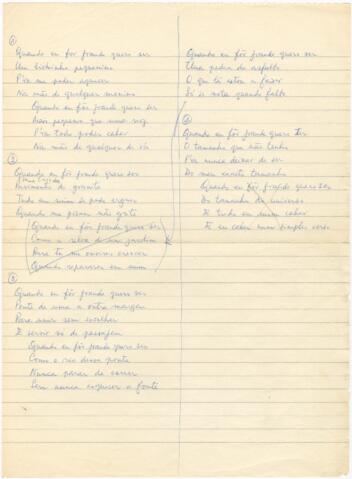 1
Quando eu fôr grande quero ser
Um bichinho pequenino
P'ra me poder aquecer
Na mão de qualquer menino
Quando eu fôr grande quero ser
mais pequeno que uma noz
P'ra tudo poder caber
Na mão de qualquer de vós
2
Quando eu fôr grande quero ser
uma laje de
Pavimento de granito
Tudo em mim se pode erguer
Quando me pisam não grito
Quando eu fôr grande quero ser
Como a relva de um jardim
Para tu me ouvires crescer
Quando reparares em mim
3
Quando eu fôr grande quero ser
Ponte de uma a outra margem
Para unir sem escolher
E servir só de passagem
Quando eu fôr grande quero ser
Como o rio dessa ponte
Nunca parar de correr
Sem nunca esquecer a fonte
Quando eu fôr grande quero ser
Uma pedra do asfalto
O que lá estou a fazer
Só se nota quando falto
4
Quando eu fôr grande quero ter
O tamanho que não tenho
P'ra nunca deixar de ser
Do meu exacto tamanho
Quando eu fôr grande quero ser
Do tamanho do universo
E tudo em mim caber